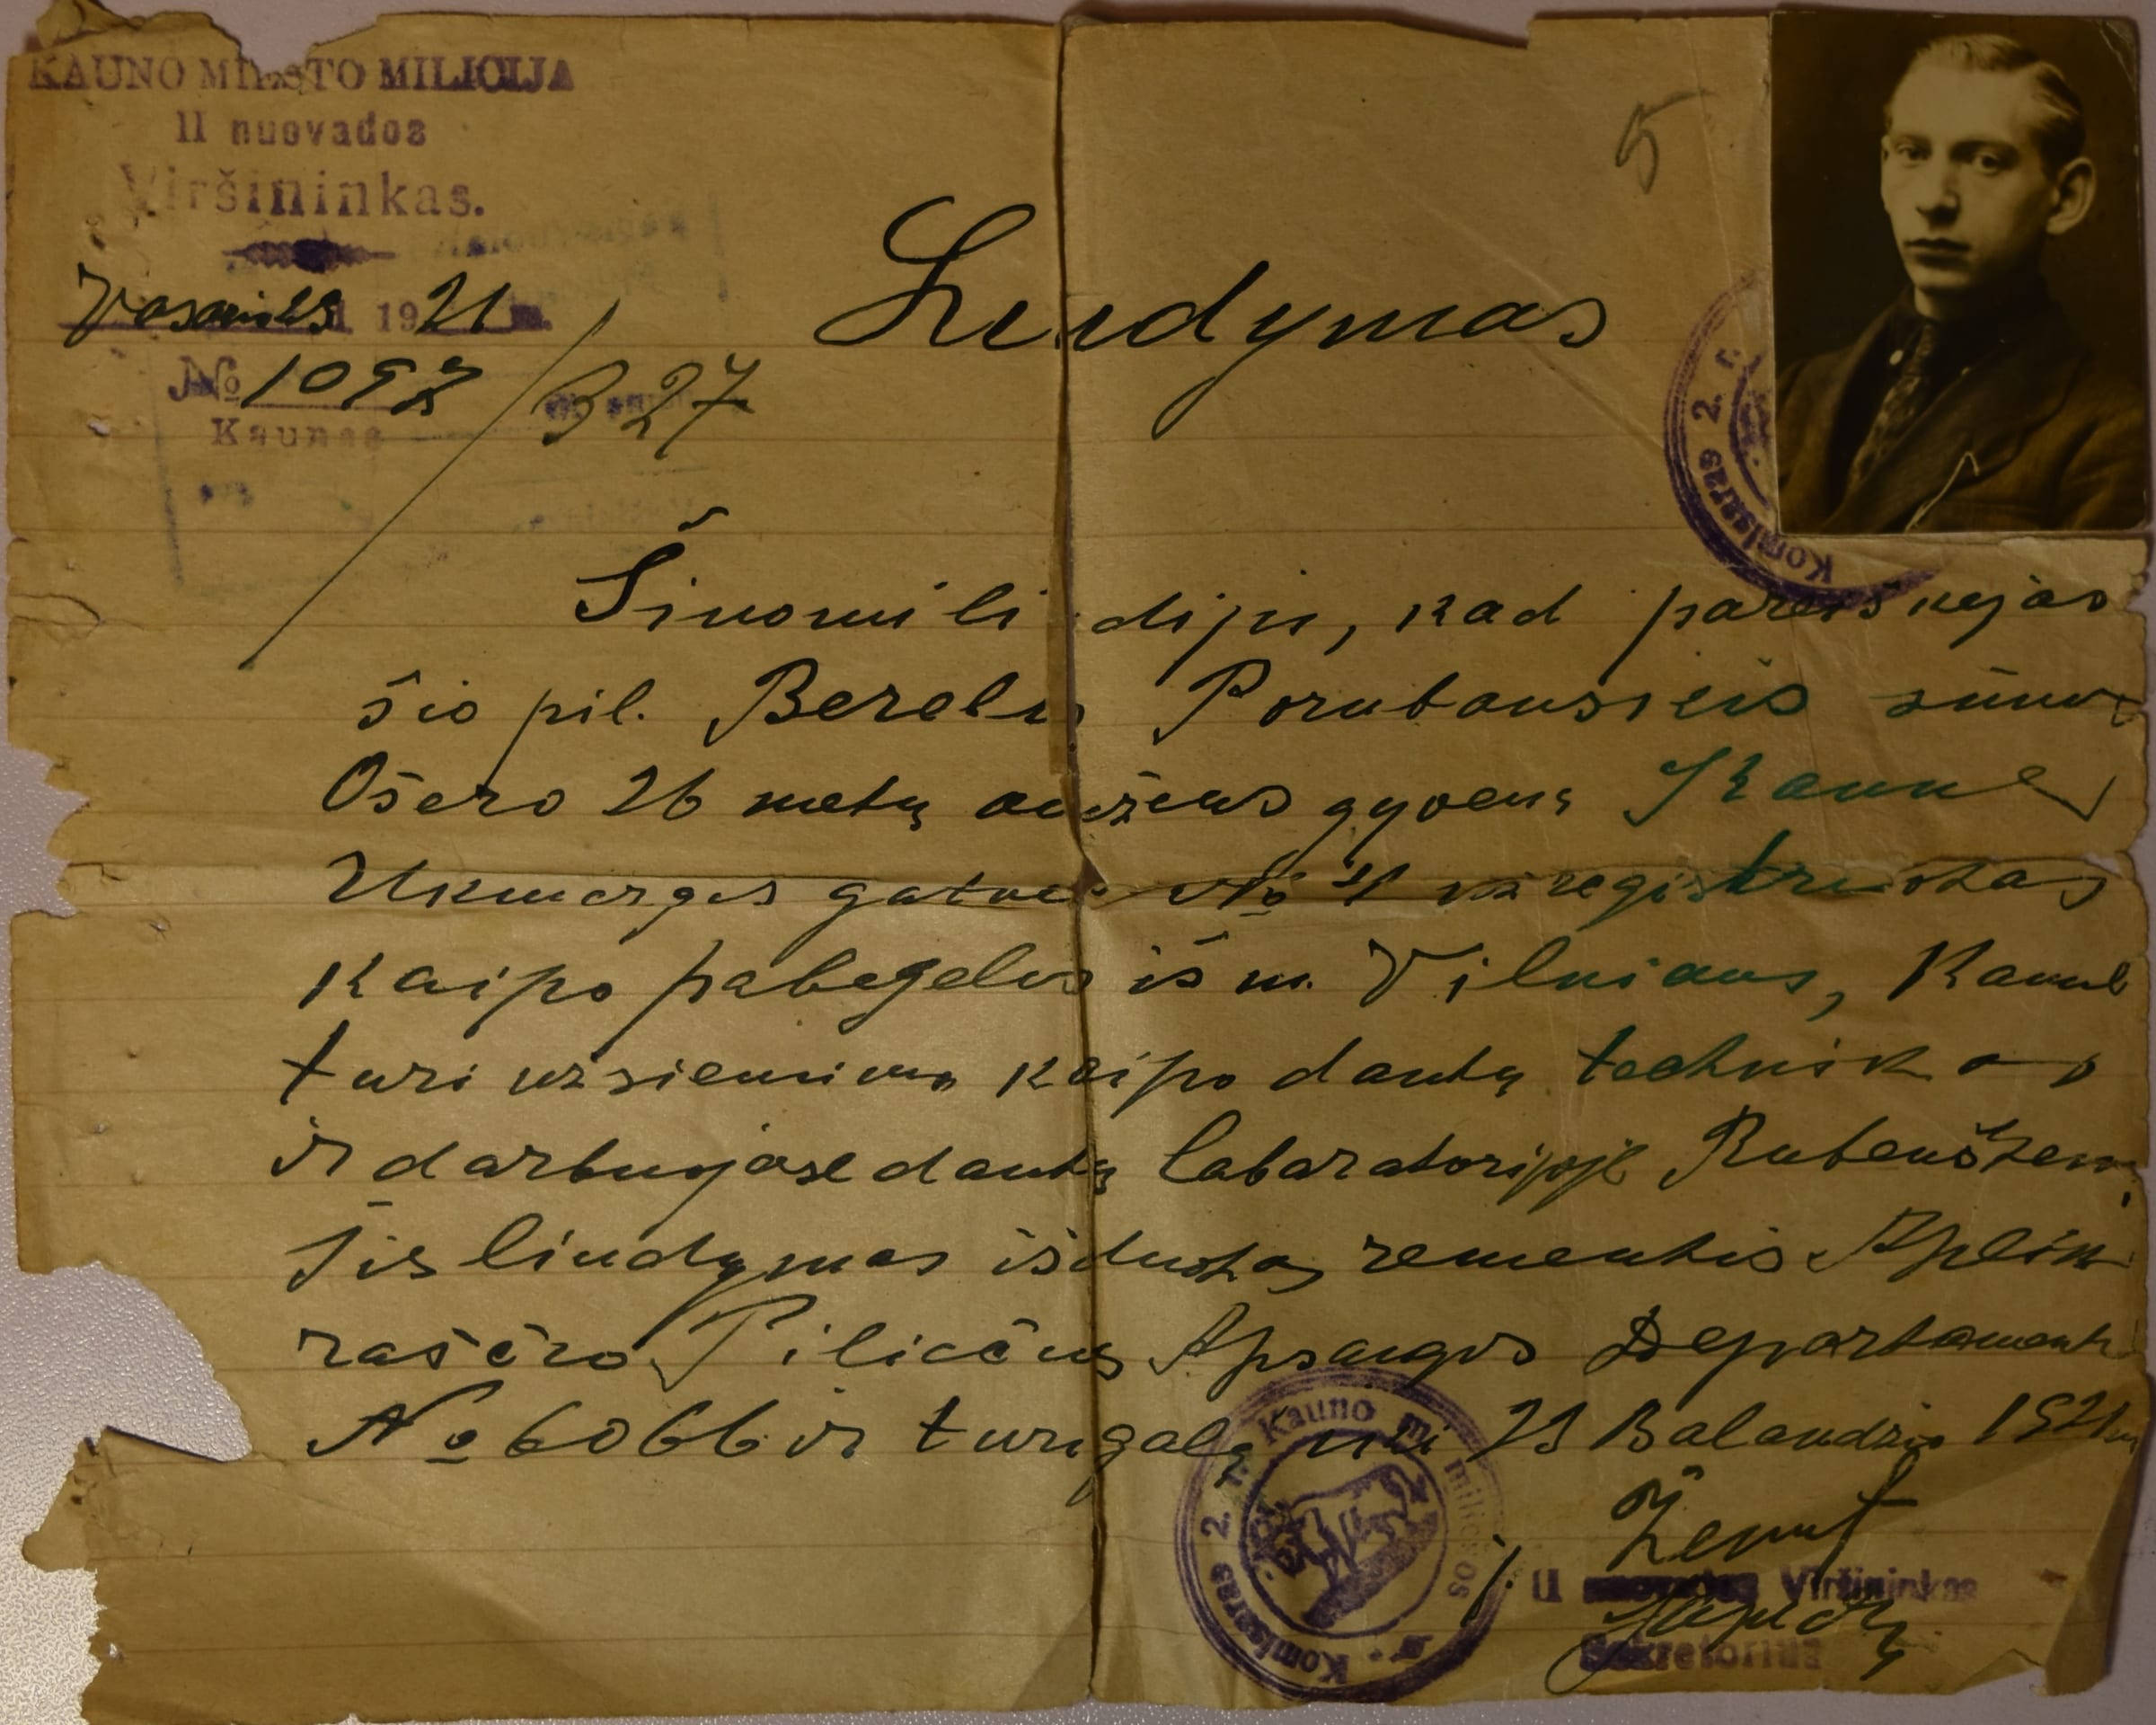 KAUNO MIESTO MILICIJA
II nuovados
Viršininkas.
Vasario 23 1921 m.
№ 1097 / B 27
Kaunas
5
Liudymas
Šiuomi liudiju, kad pareiškėjas
šio pil. Berelis Porubanskis sūnus
Ošero 26 metų amžiaus gyvenąs Kaune
Ukmergės gatvės № užregistruotas
kaipo pabegelis iš m. Vilniaus, Kaune
turi užsiemimą kaipo dantų technikas
ir darbuojase dantų labaratorijoje Rubenšteino,
Šis liudymas išduotas rementis Aplink
rasčio Piliečių Apsaugos Departamento
№ 6066 ir turi galę iki 23 Balandžio 1921 m
II nuovados Viršininkas
Sekretorius
Komisaras 2. r.
Kauno m. milicijos
Komisaras 2. r.